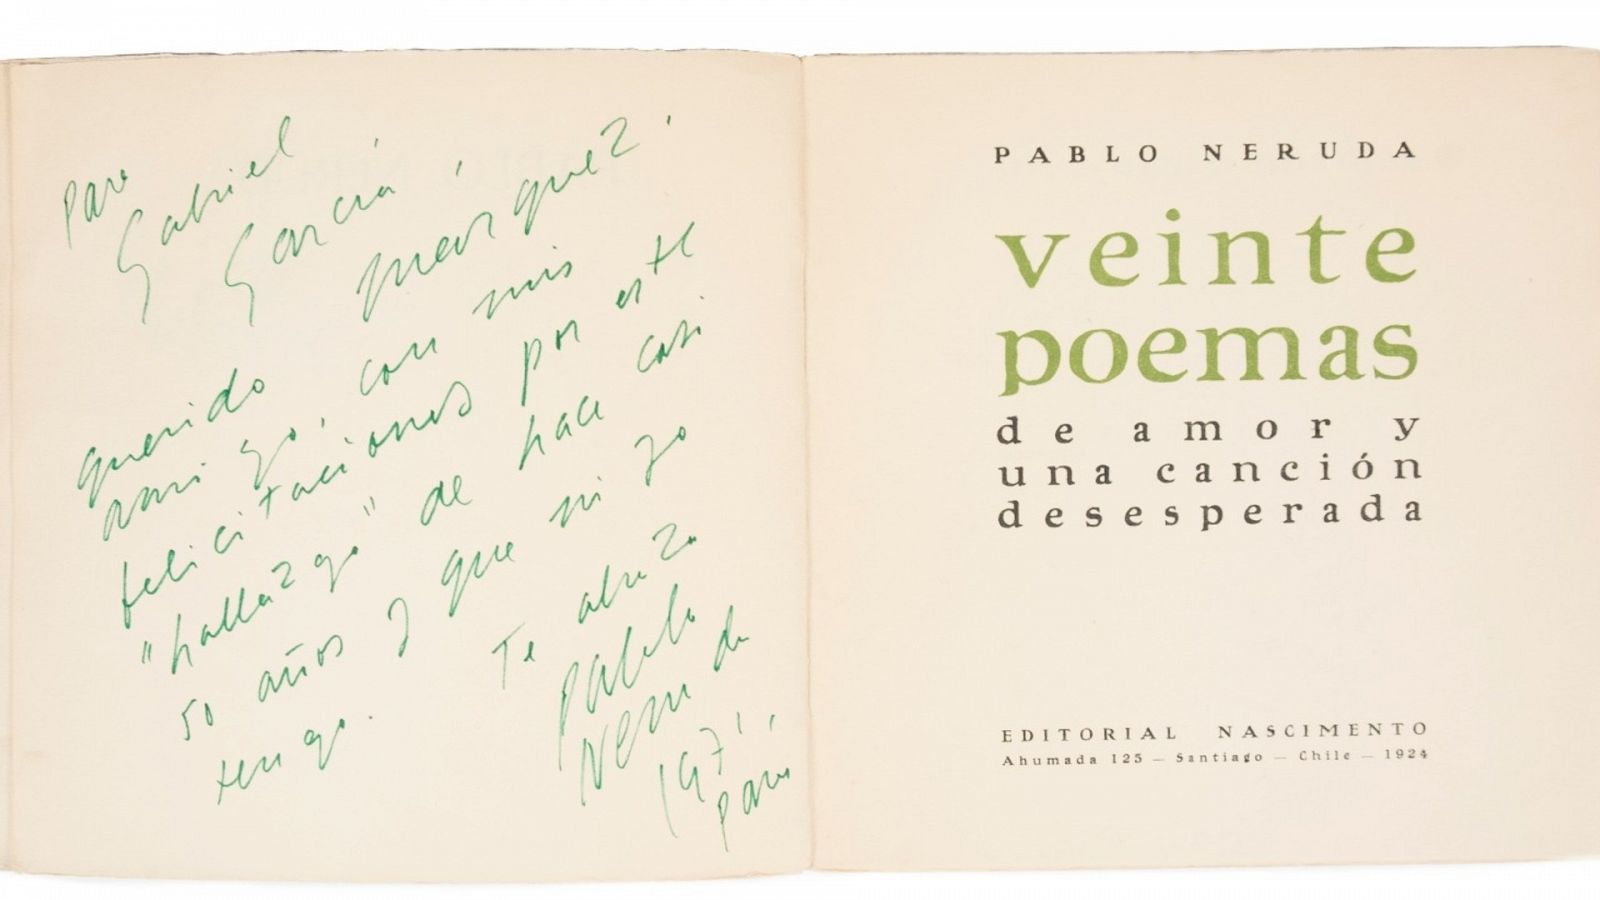 Para
Gabriel
García
Márquez,
querido
amigo, con mis
felicitaciones por este
"hallazgo" de hace casi
50 años y que ni yo
tengo.
Te abraza
Pablo
Neruda
Paris
PABLO NERUDA
veinte
poemas
de amor y
una canción
desesperada
EDITORIAL NASCIMENTO
Ahumada 125 — Santiago — Chile — 1924